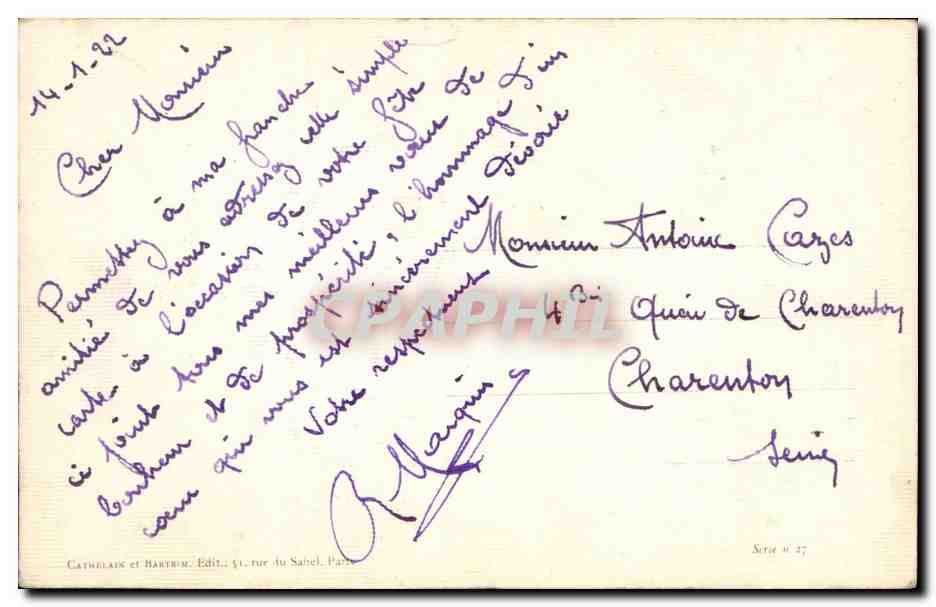 14-1-22
Cher Monsieur
Permettez à ma franche
amitié de vous adresser cette simple
carte à l'occasion de votre fête
ci joint tous mes meilleurs voeux de
bonheur et de prospérité, l'hommage d'un
coeur qui vous est sincèrement dévoué
Votre respectueux
R Marquis
Monsieur Antoine Cazes
4 Bis Quai de Charenton
Charenton
Seine
CPAPHIL
CATHELAIN et BARTRIM, Edit., 51, rue du Sahel, Paris
Serie n 27